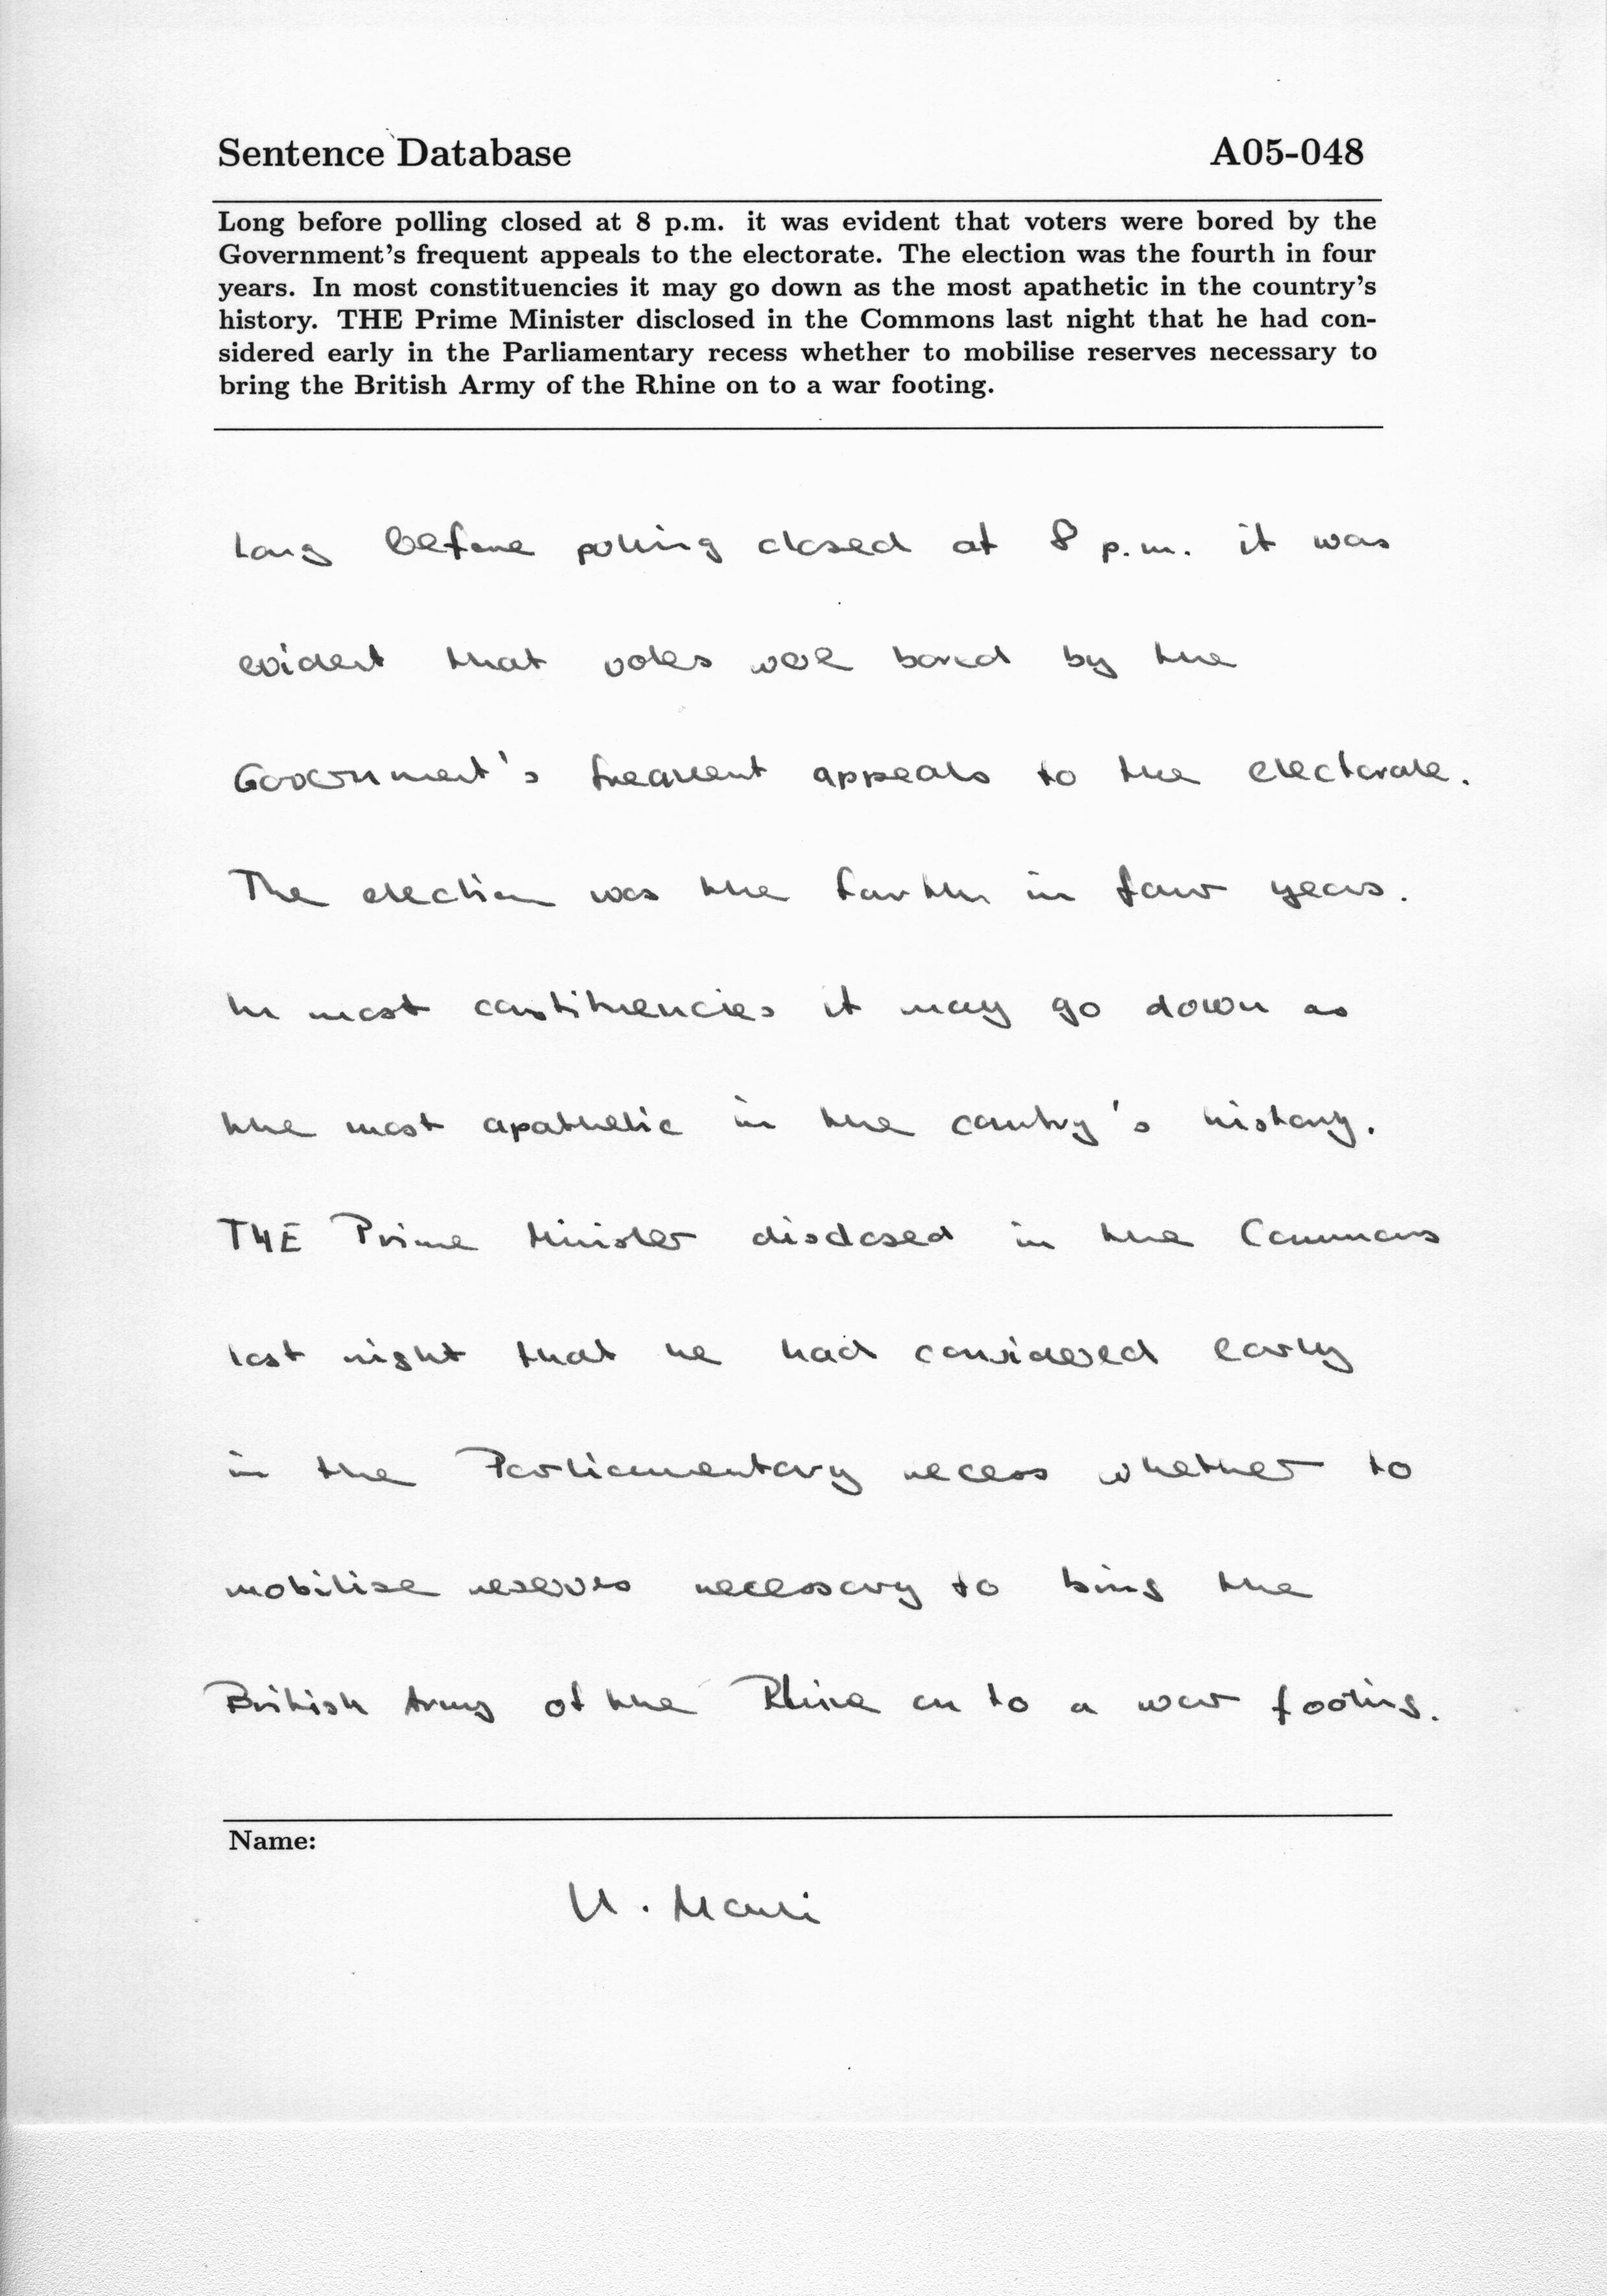 Sentence Database A05-048
Long before polling closed at 8 p.m. it was evident that voters were bored by the
Government's frequent appeals to the electorate. The election was the fourth in four
years. In most constituencies it may go down as the most apathetic in the country's
history. THE Prime Minister disclosed in the Commons last night that he had con-
sidered early in the Parliamentary recess whether to mobilise reserves necessary to
bring the British Army of the Rhine on to a war footing.
Long before polling closed at 8 p.m. it was
evident that voters were bored by the
Government's frequent appeals to the electorate.
The election was the fourth in four years.
In most constituencies it may go down as
the most apathetic in the country's history.
THE Prime Minister disclosed in the Commons
last night that he had considered early
in the Parliamentary recess whether to
mobilise reserves necessary to bring the
British Army of the Rhine on to a war footing.
Name: